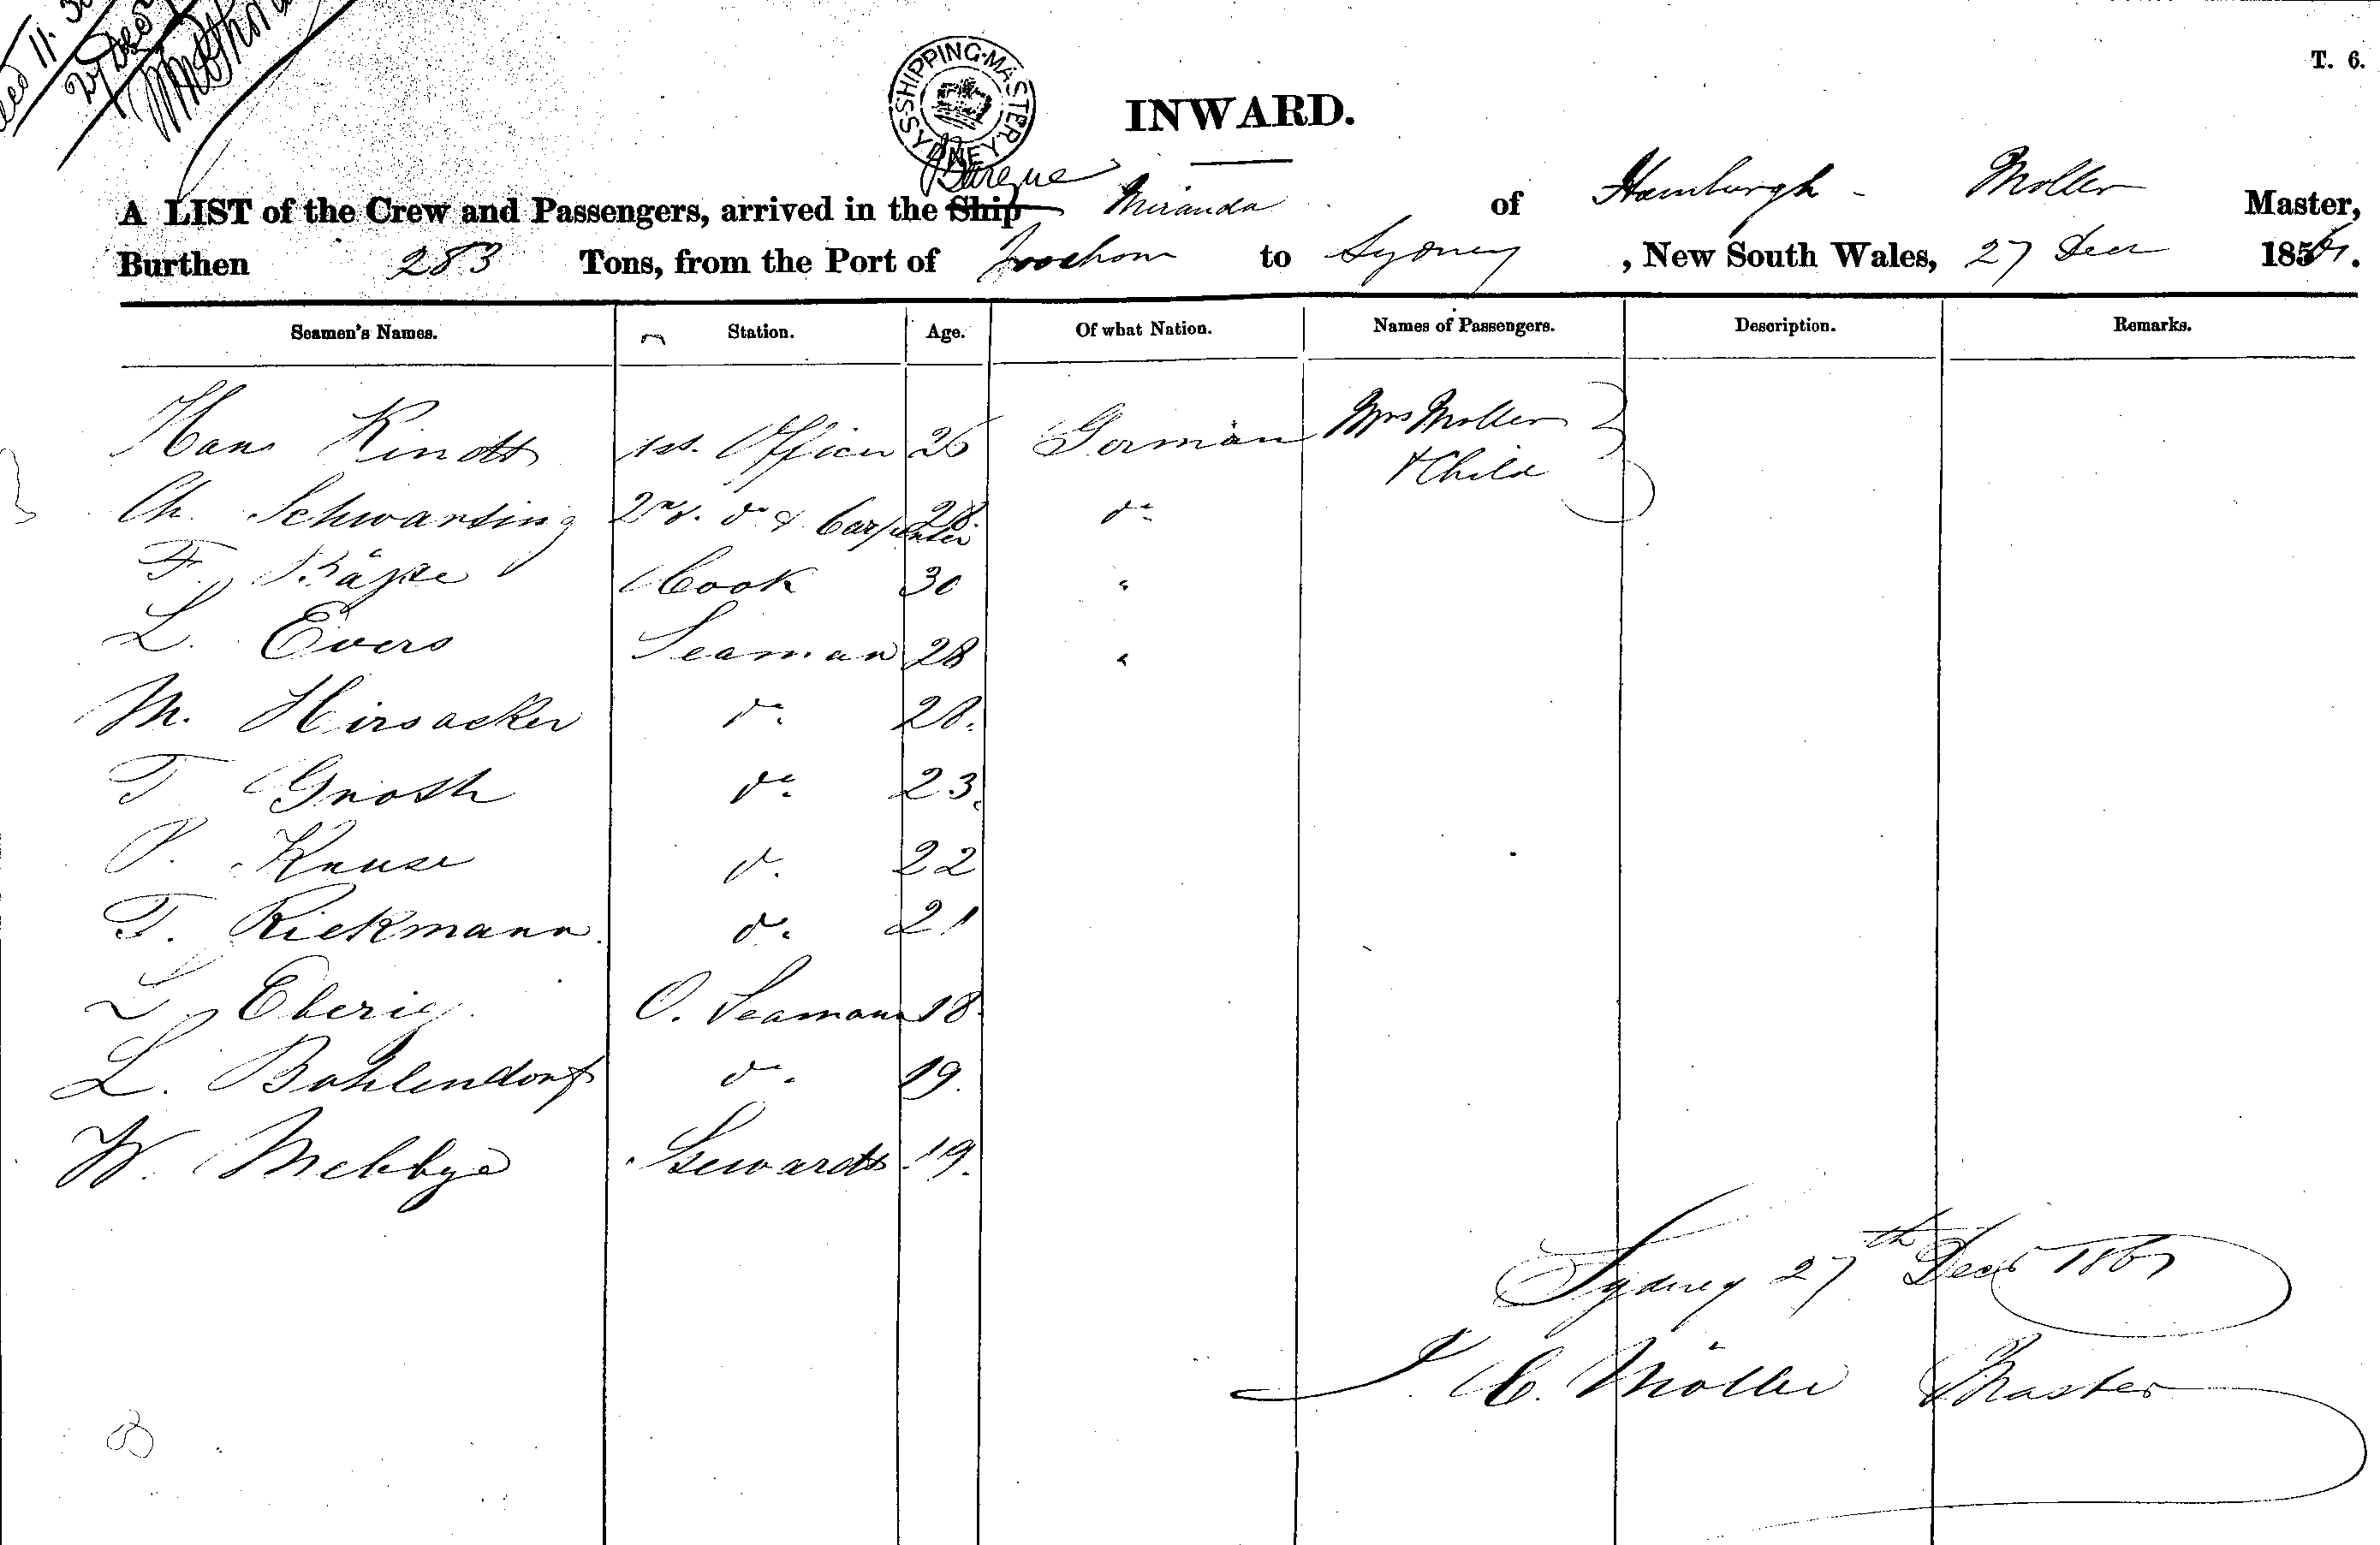 T. 6.
SHIPPING MASTER SYDNEY
INWARD.
Barque
A LIST of the Crew and Passengers, arrived in the Ship Miranda of Hamburgh - Moller Master,
Burthen 283 Tons, from the Port of Foochow to Sydney, New South Wales, 27 Decr 1861.
Seamen's Names. Station. Age. Of what Nation. Names of Passengers. Description. Remarks.
Hans Kindt 1st. Officer 26 German Mrs Moller
& Child
Ch. Schwarsing 2nd. do & Carpenter 28. do
F. Käpke Cook 30 "
L. Evers Seaman 28 "
M. Hirsacker do. 28.
T Gnosh do. 23.
P. Knuse d. 22
T. Riekmann do. 21
Eberie O. Seaman 18
L. Bohlendorf do. 19.
W. Mebbye Stewardt 19.
Sydney 27th Decbr 1861
J. C. Möller Master